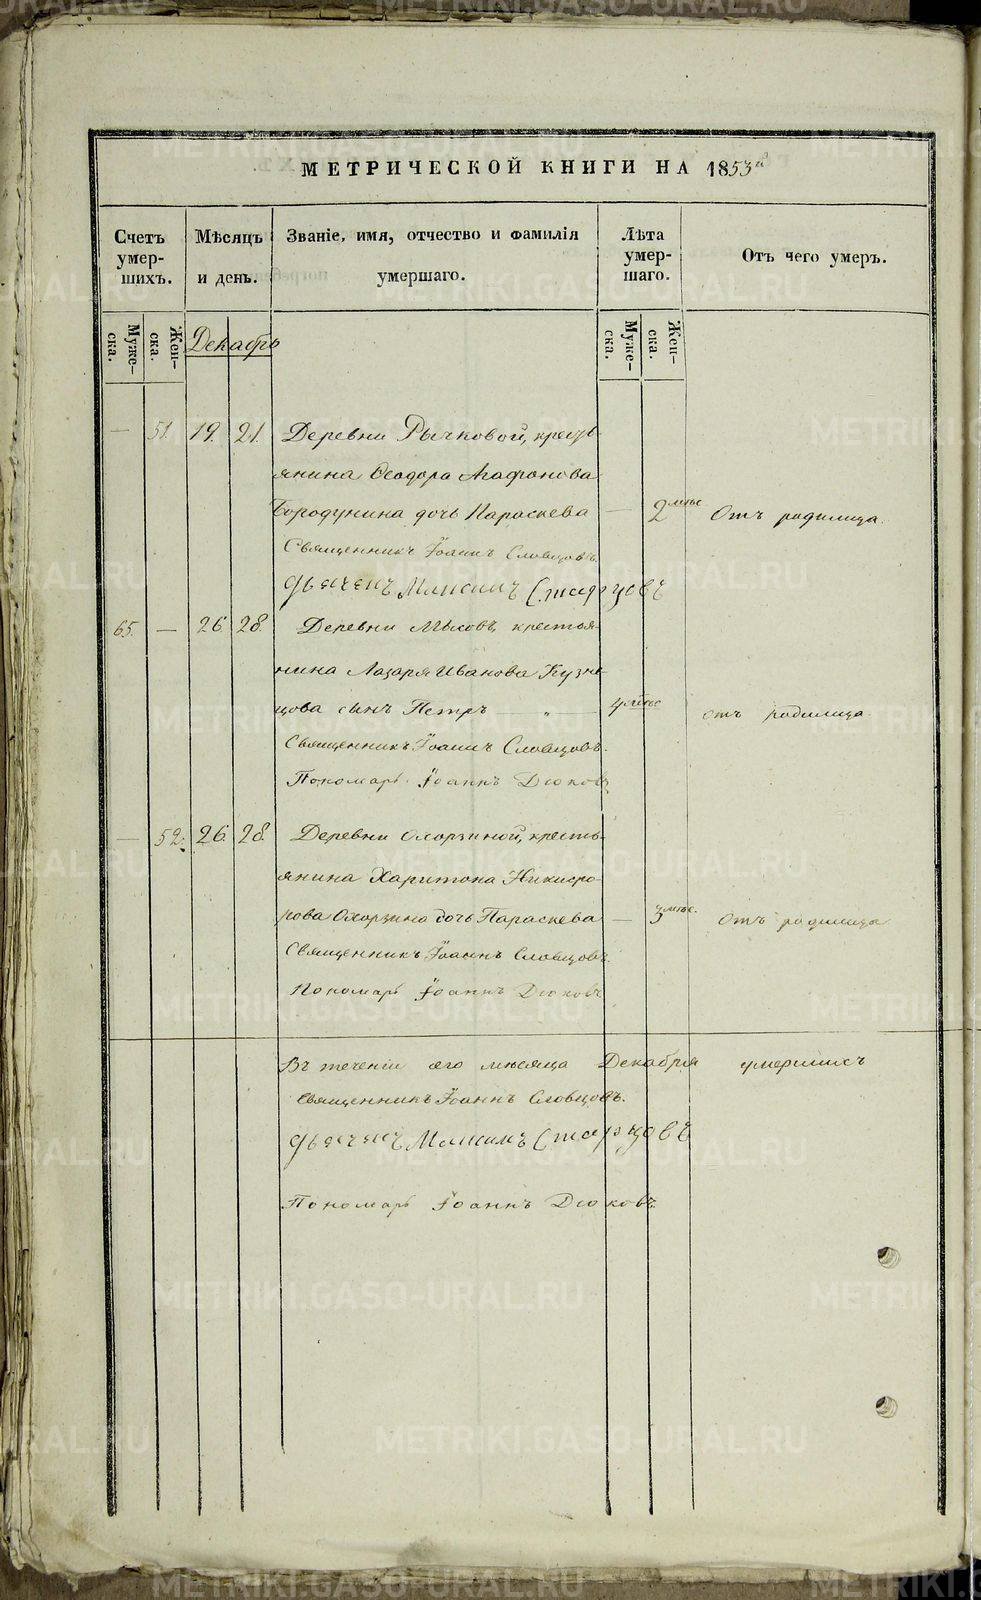 МЕТРИЧЕСКОЙ КНИГИ НА 1853й
Счетъ умер-шихъ.
Мѣсяцъ и день.
Званіе, имя, отчество и фамилія умершаго.
Лѣта умер-шаго.
Отъ чего умеръ.
Муже-ска.
Жен-ска.
Декабрь
Муже-ска.
Жен-ска.
— 51. 19. 21. Деревни Рычковой, кресть-
янина Ѳеодора Агафонова
Бородунина дочь Параскева — 2 мѣс Отъ родимца.
Священникъ Іоаннъ Словцовъ.
Дьячекъ Максимъ Старцовъ
65. — 26 28. Деревни Мысовъ, крестья-
нина Лазаря Иванова Кузне-
цова сынъ Петръ " — отъ родимца.
Священникъ Іоаннъ Словцовъ.
Пономарь Іоаннъ Дюковъ
— 52. 26. 28. Деревни Охорзиной, кресть-
янина Харитона Никифо-
рова Охорзина дочь Параскева — 3 мѣс. Отъ родимца
Священникъ Іоаннъ Словцовъ.
Пономарь Іоаннъ Дюковъ
Въ теченіи сего мѣсяца Декабря умершихъ
Священникъ Іоаннъ Словцовъ.
Дьячекъ Максимъ Старцовъ
Пономарь Іоаннъ Дюковъ.
METRIKI.GASO-URAL.RU